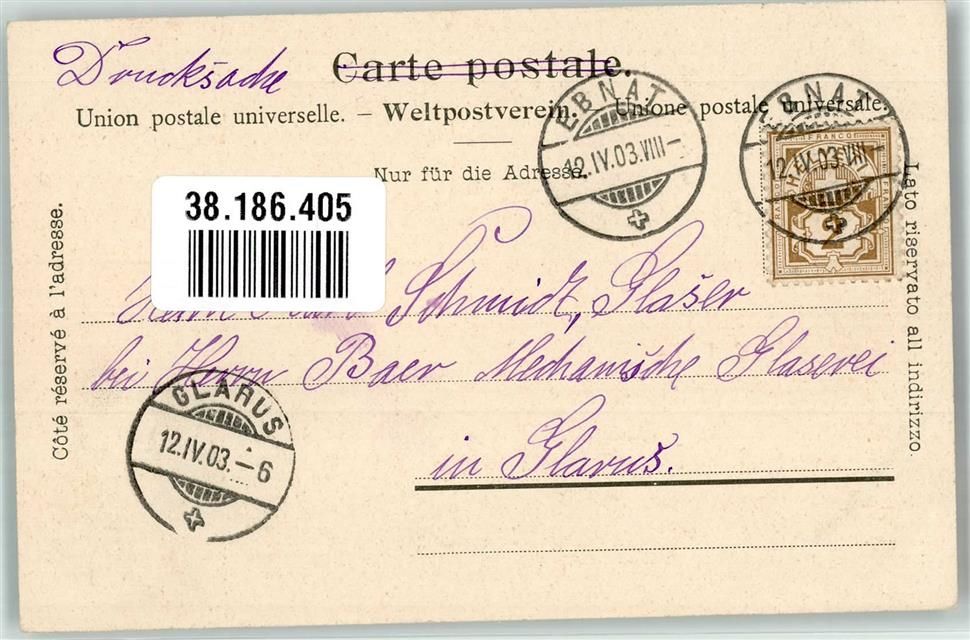 Drucksache
Carte postale.
Union postale universelle. – Weltpostverein. – Unione postale universale.
Nur für die Adresse.
EBNAT
12.IV.03.VIII–
EBNAT
12.IV.03.VIII–
FRANCO
2
38.186.405
Côté réservé à l'adresse.
Lato riservato all indirizzo.
Herrn Schmidt, Glaser
bei Herrn Baer Mechanische Glaserei
in Glarus.
GLARUS
12.IV.03.–6